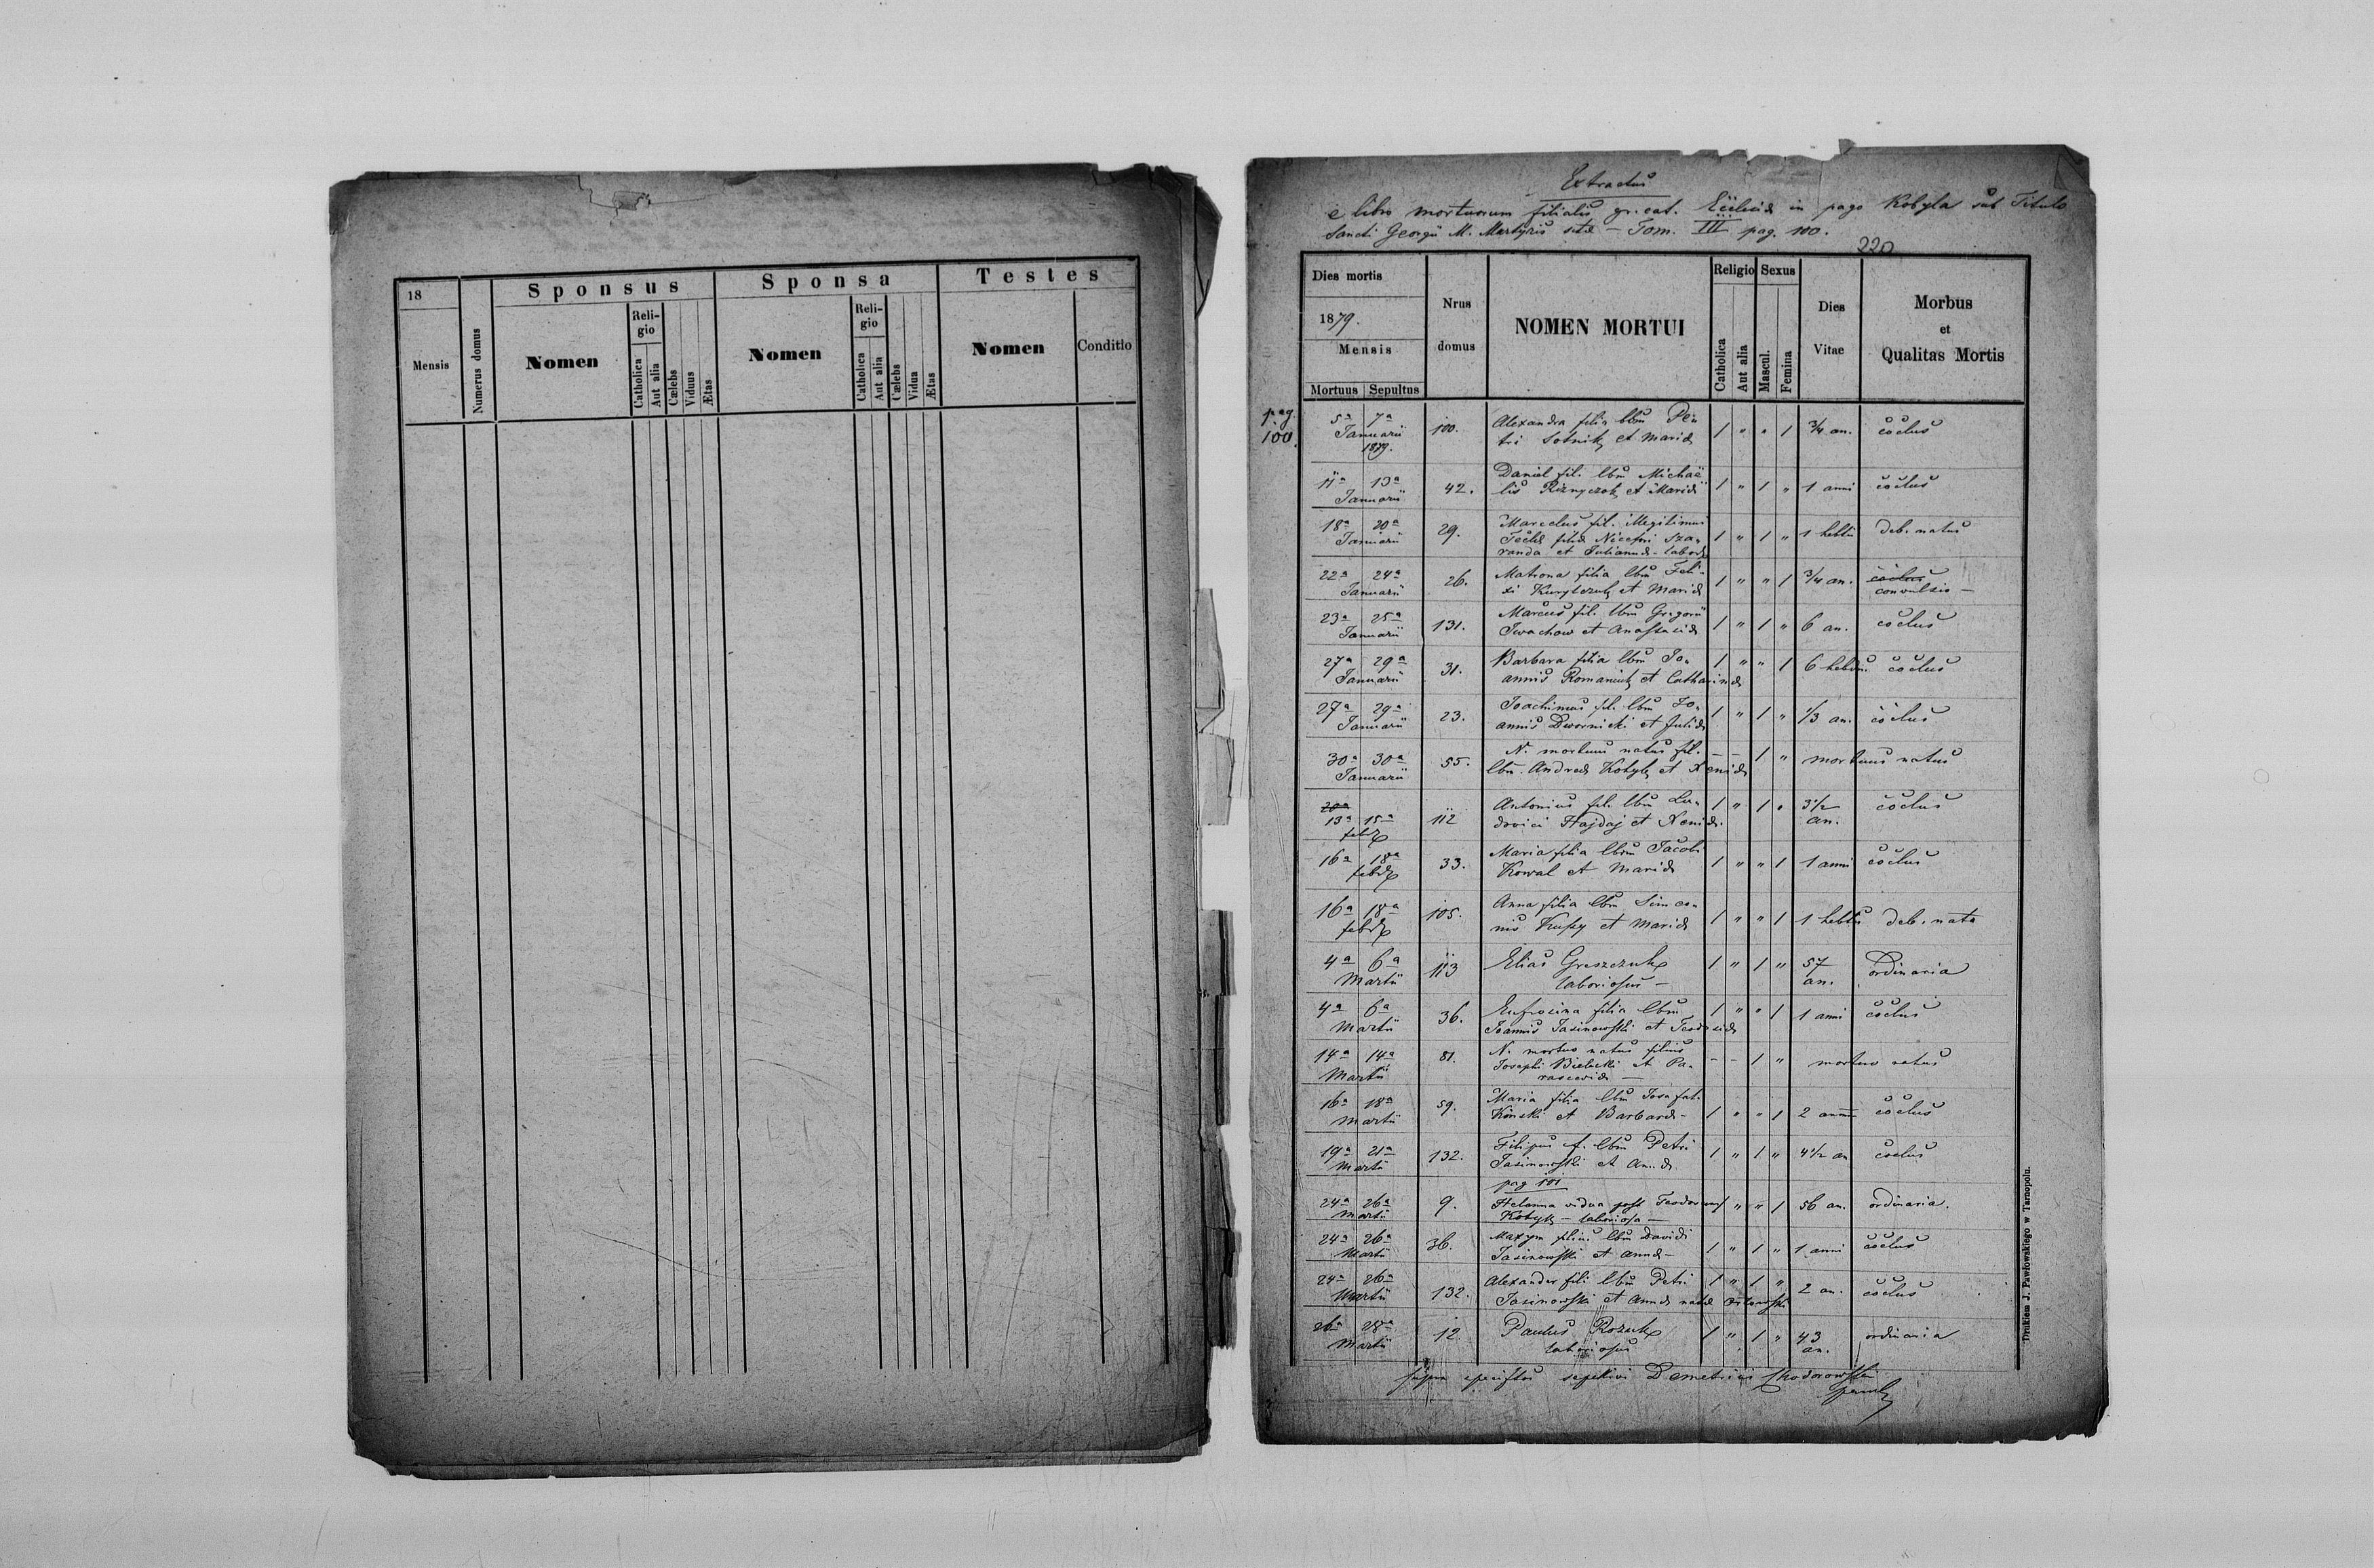 18
Mensis
Numerus domus
Sponsus
Nomen
Religio
Catholica
Aut alia
Cælebs
Viduus
Ætas
Sponsa
Nomen
Religio
Catholica
Aut alia
Cælebs
Vidua
Ætas
Testes
Nomen
Conditio
Extractus
e libro mortuorum filialis gr. cat. Ecclesiæ in pago Kobyla sub Titulo
Sancti Georgii M. Martyris sitæ – Tom. III pag. 100.
220
Dies mortis
1879.
Mensis
Mortuus Sepultus
Nrus domus
NOMEN MORTUI
Religio
Catholica
Aut alia
Sexus
Mascul.
Femina
Dies Vitae
Morbus
et
Qualitas Mortis
pag.
100.
5a 7a 100. Alexandra filia lbm Pe- 1 " " 1 3/4 an.
Januarii tri Sotnik et Mariæ
1879.
11a 13a 42. Daniel fil. lbm Michaë- 1 " 1 " 1 anni
Januarii lis Riznyczok et Mariæ
18a 20a 29. Marcelus fil. illegitimus 1 " 1 " deb. natus
Januarii Teclæ filiæ Nicefori Sza-
randa et Julianæ – labor
22a 24a 26. Matrona filia lbm Feli- 1 " " 1 3/4 an.
Januarii et Mariæ convulsio –
23a 25a 131. Marcus fil. lbm Gregorii 1 " 1 " 6 an.
Januarii Iwachow et Anastasiæ
27a 29a 31. Barbara filia lbm Jo- 1 " " 1 6 hebdm.
Januarii annis Romaniuk et Catharinæ
27a 29a 23. Joachimus fil. lbm Jo- 1 " 1 " 1/3 an.
Januarii annis Dwornicki et Juliæ
30a 30a 55. N. mortuus natus fil. – – 1 " mortuus natus
Januarii lbm. Andreæ Kobyl et Xeniæ
13a 15a 112 Antonius fil. lbm Lu- 1 " 1 " 3 1/2 an.
febr dovici Hajdaj et Xeniæ.
16a 18a 33. Maria filia lbm Jacobi 1 " " 1 1 anni
febr Kowal et Mariæ
16a 18a 105. Anna filia lbm Simeo- 1 " " 1 deb. nata
febr nis et Mariæ
4a 6a 113 Elias Greszczuk 1 " 1 " 57 an. ordinaria
Martii laboriosus –
4a 6a 36. Eufrosina filia lbm 1 " " 1 1 anni
Martii Joannis Jasinowski et Teodosiæ
14a 14a 81. N. mortuo natus filius – – 1 " mortuo natus
Martii Josephi Bielecki et Pa-
rascewiæ –
16a 18a 59. Maria filia lbm Josafati 1 " " 1 2
Martii Konski et Barbaræ –
19a 21a 132. Filipus f. lbm Petri 1 " 1 " 4 1/2 an
Martii Jasinowski et Annæ
pag 101
24a 26a 9. Helenna vidua post Teodorum 1 " " 1 56 an. ordinaria.
Martii – laboriosa –
24a 26a 36. Maxym filius lbm Davidi 1 " 1 " 1 anni
Martii Jasinowski et Annæ –
24a 26a 132. Alexander fili lbm Petri 1 " 1 " 2 an.
Martii Jasinowski et Annæ natæ
26a 28a 12 Paulus Rozuk 1 " 1 " 43 an. ordinaria
Martii laboriosus
Demetrius Chodorowski
Drukiem J. Pawłowskiego w Tarnopolu.